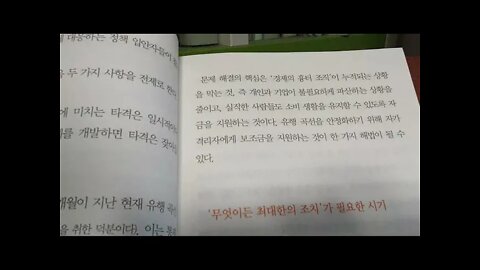 대응하는 정책 입안자들이
두 가지 사항을 전제로 한다
에 미치는 타격은 일시적이
를 개발하면 타격은 잦아
개월이 지난 현재 유행
을 취한 덕분이다). 이는
문제 해결의 핵심은 '경제의 흉터 조직'이 누적되는 상황
을 막는 것, 즉 개인과 기업이 불필요하게 파산하는 상황을
줄이고, 실직한 사람들도 소비 생활을 유지할 수 있도록 자
금을 지원하는 것이다. 유행 곡선을 안정화하기 위해 자가
격리자에게 보조금을 지원하는 것이 한 가지 해법이 될 수
있다.
'무엇이든 최대한의 조치'가 필요한 시기